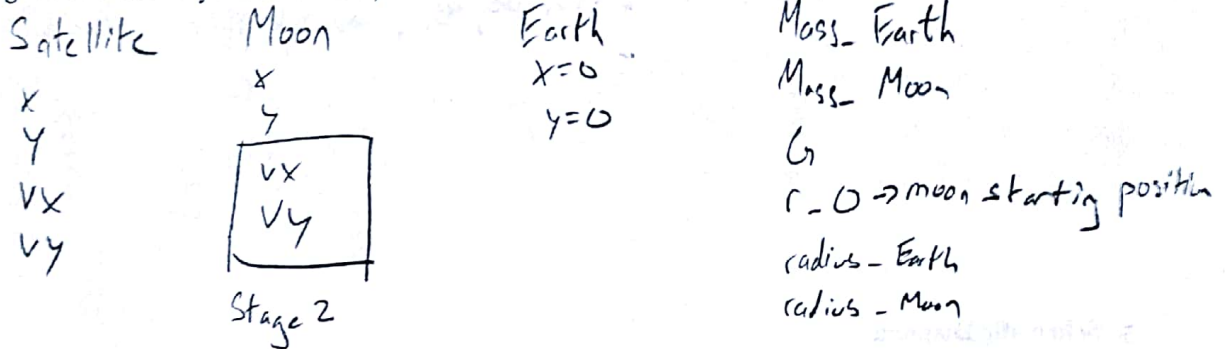 Satellite
x
y
vx
vy
Moon
x
y
vx
vy
Stage 2
Earth
x=0
y=0
Mass_Earth
Mass_Moon
G
r_0 → moon starting position
radius_Earth
radius_Moon